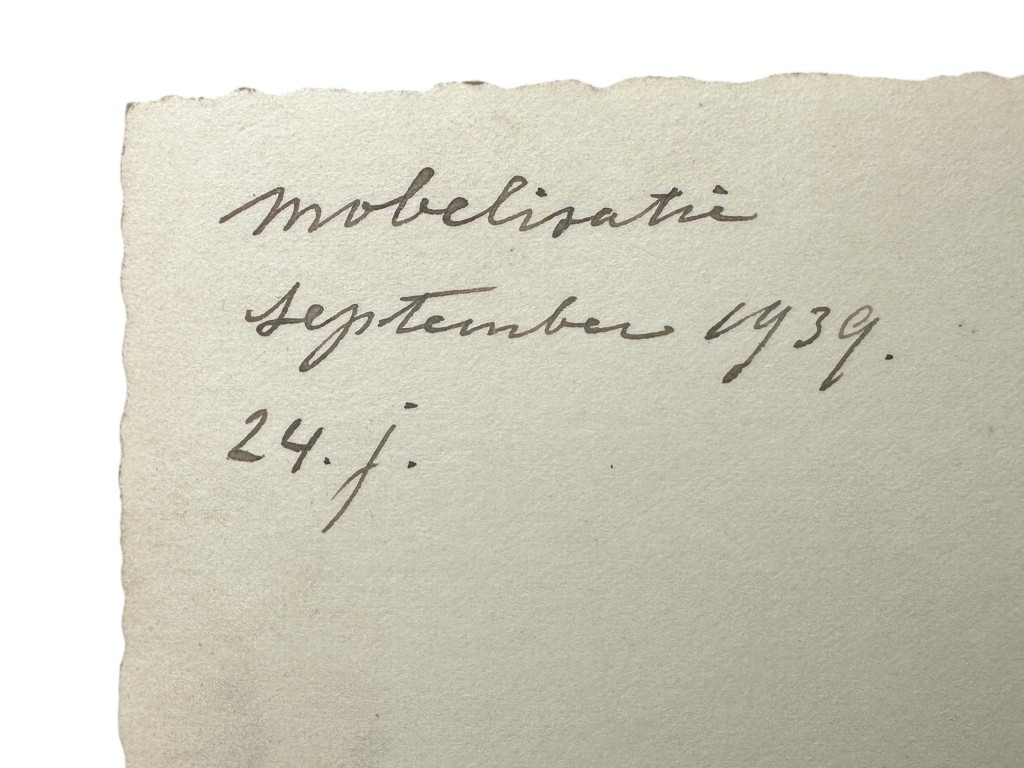 mobelisatie
september 1939.
24. j.